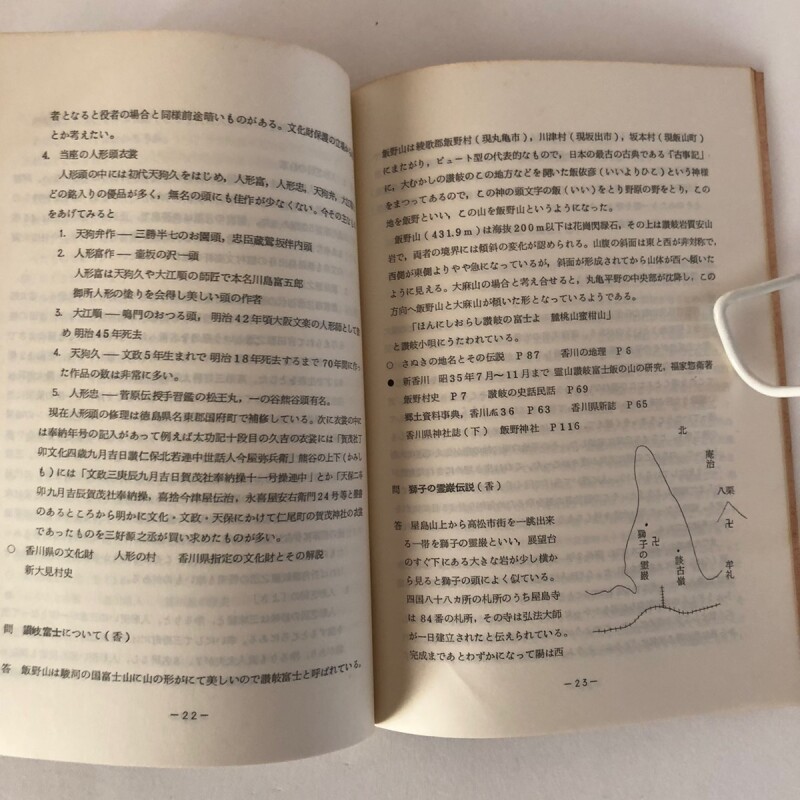 者となると役者の場合と同様前途暗いものがある。文化財保護の立場か
とか考えたい。
4. 当座の人形頭衣裳
人形頭の中には初代天狗久をはじめ，人形富，人形忠，天狗弁，大江順
どの銘入りの優品が多く，無名の頭にも佳作が少なくない。今その主な
をあげてみると
1. 天狗弁作 ― 三勝半七のお園頭，忠臣蔵鷲坂伴内頭
2. 人形富作 ― 壷坂の沢一頭
人形富は天狗久や大江順の師匠で本名川島富五郎
御所人形の塗りを会得し美しい頭の作者
3. 大江順 ― 鳴門のおつる頭，明治42年頃大阪文楽の人形師として
め 明治45年死去
4. 天狗久 ― 文政5年生まれで 明治18年死去するまで70年間に
た作品の数は非常に多い。
5. 人形忠 ― 菅原伝授手習鑑の松王丸，一の谷熊谷頭有名。
現在人形頭の修理は徳島県名東郡国府町で補修している。次に衣裳の中に
は奉納年号の記入があって例えば太功記十段目の久吉の衣裳には「賀茂社丁
卯文化四歳九月吉日讃仁保北若連中世話人今屋弥兵衛」熊谷の上下(かみし
も)には「文政三庚辰九月吉日賀茂社奉納操十一号操連中」とか「天保二辛
卯九月吉辰賀茂社奉納，喜捨今津屋伝治，永喜屋安右衛門24号等と墨書
のあるところから明かに文化・文政・天保にかけて仁尾町の賀茂神社の衣裳
であったものを三好源之丞が買い求めたものが多い。
○ 香川県の文化財　人形の村　香川県指定の文化財とその解説
新大見村史
問 讃岐富士について(香)
答 飯野山は駿河の国富士山に山の形がにて美しいので讃岐富士と呼ばれている。
―22―
飯野山は綾歌郡飯野村(現丸亀市)，川津村(現坂出市)，坂本村(現飯山町)
にまたがり，ビュート型の代表的なもので，日本の最古の古典である『古事記』
に，大むかしの讃岐のこの地方などを開いた飯依彦(いいよりひこ)という神様
をまつってあるので，この神の頭文字の飯(いい)をとり野原の野をとり，この
地を飯野といい，この山を飯野山というようになった。
飯野山(431.9m)は海抜200m以下は花崗閃緑石，その上は讃岐岩質安山
岩で，両者の境界には傾斜の変化が認められる。山腹の斜面は東と西が非対称で，
西側が東側よりやや急になっているが，斜面が形成されてから山体が西へ傾いた
ように見える。大麻山の場合と考え合せると，丸亀平野の中央部が沈降し，この
方向へ飯野山と大麻山が傾いた形となっているようである。
「ほんにしおらし讃岐の富士よ　雛桃山蜜柑山」
と讃岐小唄にうたわれている。
○ さぬきの地名とその伝説　P87　香川の地理　P6
● 新香川　昭35年7月〜11月まで　霊山讃岐富士飯の山の研究，福家惣衛著
飯野村史　P7　讃岐の史話民話　P69
郷土資料事典，香川№36　P63　香川県新誌　P65
香川県神社誌(下)　飯野神社　P116
問 獅子の霊巌伝説(香)
答 屋島山上から高松市街を一眺出来
る一帯を獅子の霊巌といい，展望台
のすぐ下にある大きな岩が少し横か
ら見ると獅子の頭によく似ている。
四国八十八カ所の札所のうち屋島寺
は84番の札所，その寺は弘法大師
が一日建立されたと伝えられている。
完成まであとわずかになって陽は西
北
庵治
八栗
卍
卍
獅子の霊巌
談古嶺
牟礼
―23―